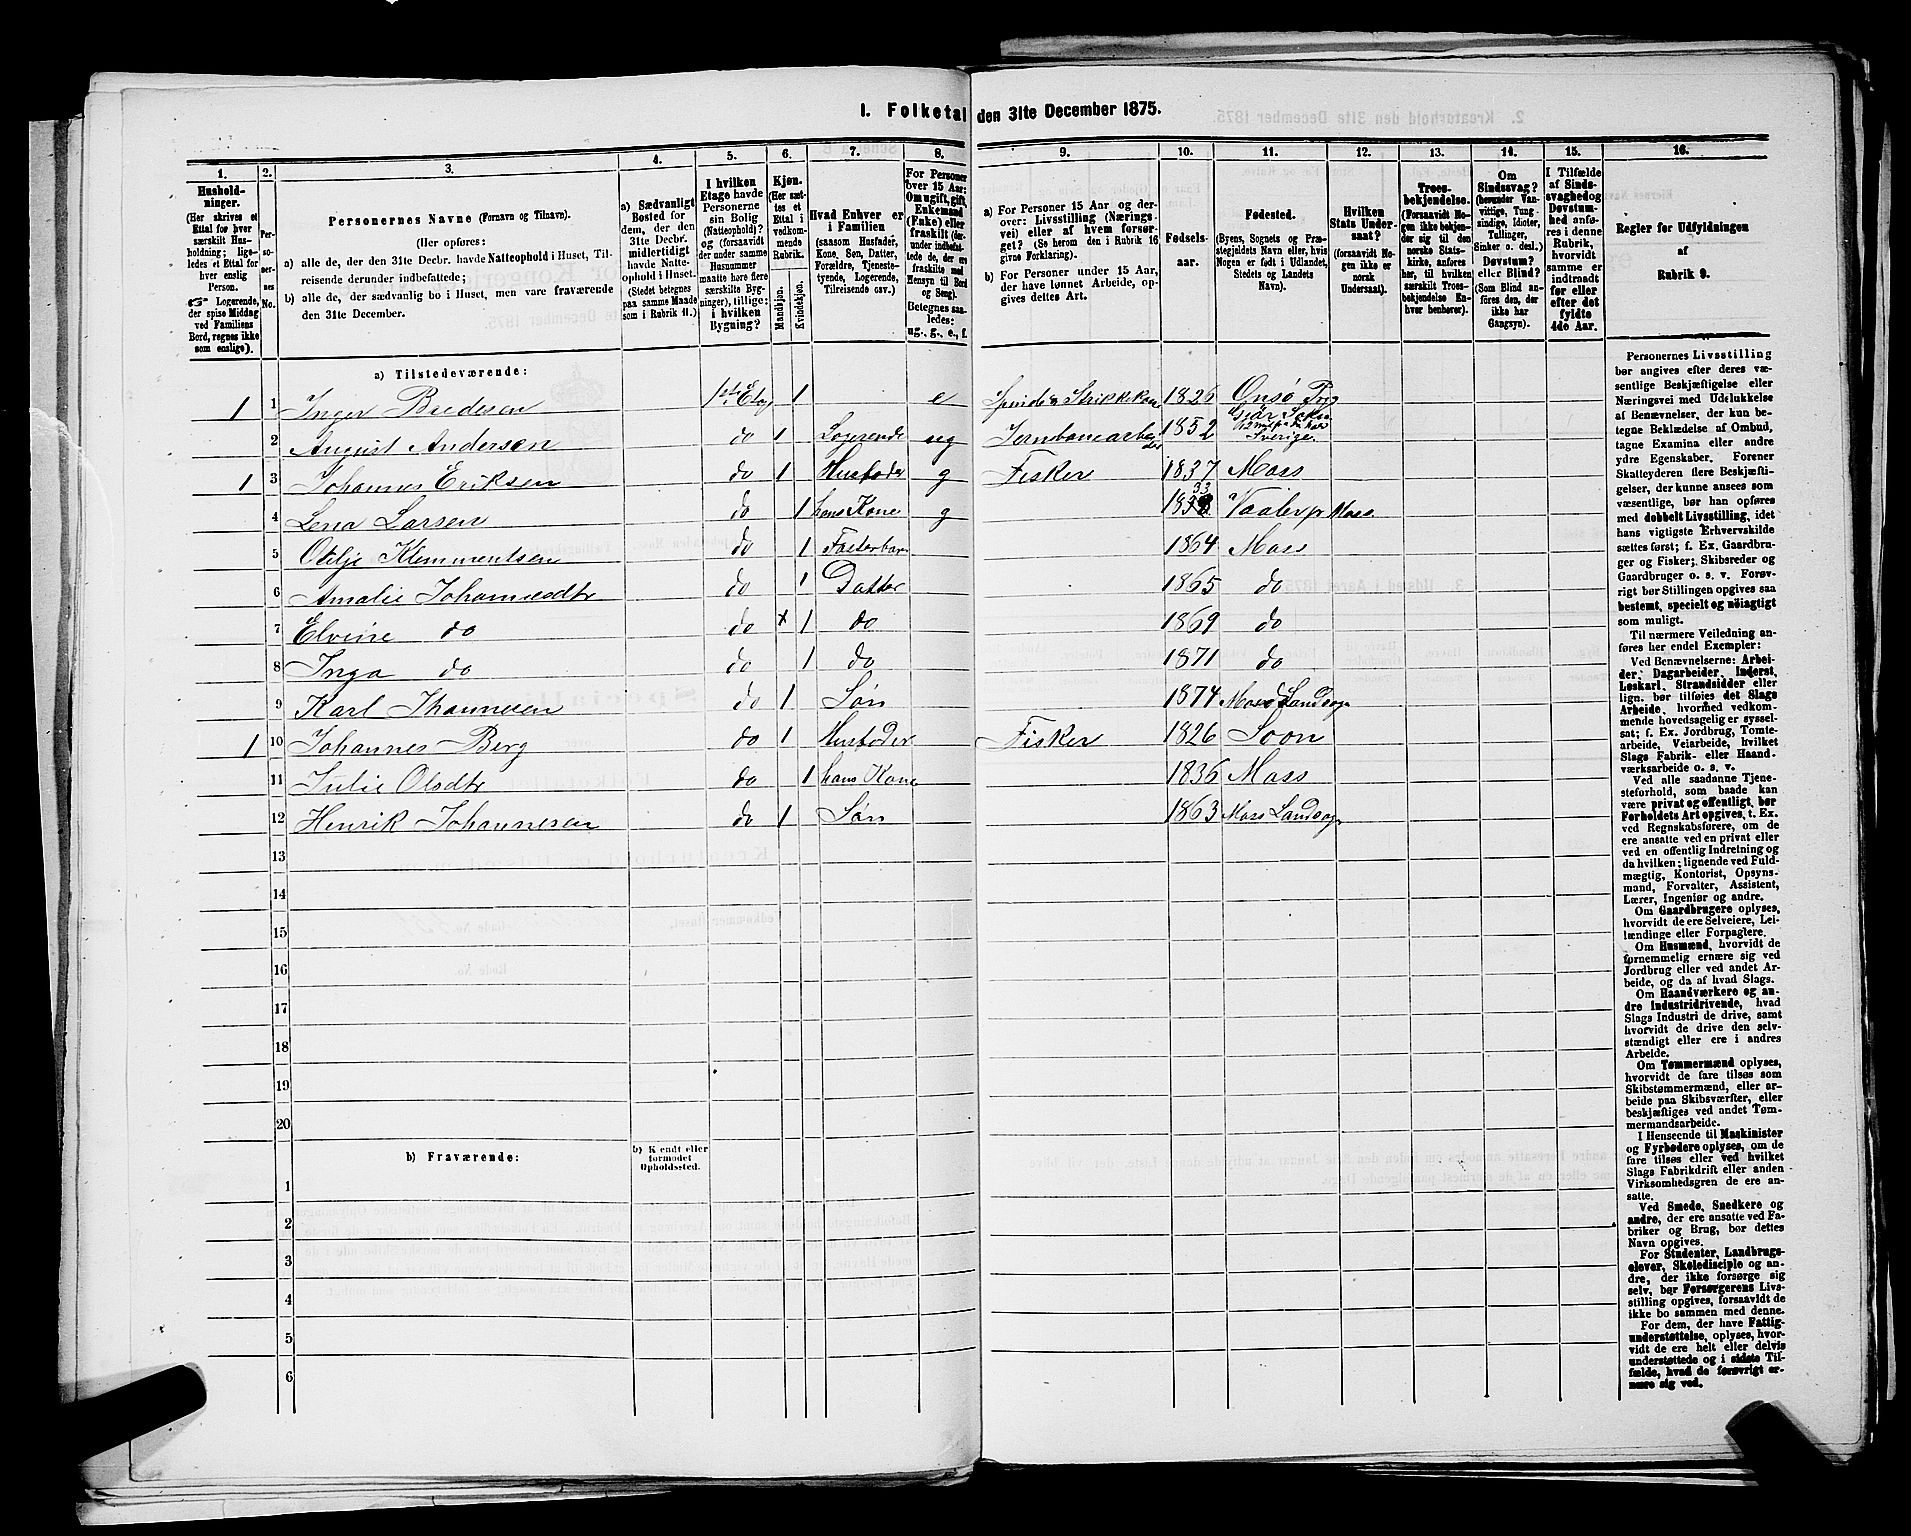 1. Folketal den 31te December 1875.
1. 2. 3. 4. 5. 6. 7. 8. 9. 10. 11. 12. 13. 14. 15. 16.
Hushold-
ninger.
(Her skrives et
Ettal for hver
særskilt Hus-
holdning; lige-
ledes et Ettal for
hver enslig
Person.
☞ Logerende,
der spise Middag
ved Familiens
Bord, regnes ikke
som enslige).
Per-
so-
ner-
nes
No.
Personernes Navne (Fornavn og Tilnavn).
(Her opføres:
a) alle de, der den 31te Decbr. havde Natteophold i Huset, Til-
reisende derunder indbefattede;
b) alle de, der sædvanlig bo i Huset, men vare fraværende
den 31te December.
a) Sædvanligt
Bosted for
dem, der den
31te Decbr.
midlertidigt
havde Natte-
ophold i Huset.
(Stedet betegnes
paa samme Maade
som i Rubrik 11.)
I hvilken
Etage havde
Personerne
sin Bolig
(Natteophold)?
og (forsaavidt
der under samme
Husnummer
maatte høre flere
særskilte Byg-
ninger), tillige:
i hvilken
Bygning?
Kjøn.
(Her sæt-
tes et
Ettal i
vedkom-
mende
Rubrik.
Mandkjøn.
Kvindekjøn.
Hvad Enhver er
i Familien
(saasom Husfader,
Kone, Søn, Datter,
Forældre, Tjeneste-
tyende, Logerende,
Tilreisende osv.)
For Personer
over 15 Aar:
Om ugift, gift,
Enkemand
(Enke) eller
fraskilt (der-
under indbefat-
tede de, der ere
fraskilte med
Hensyn til Bord
og Seng).
Betegnes saa-
ledes:
ug., g., e., f.
a) For Personer 15 Aar og der-
over: Livsstilling (Nærings-
vei) eller af hvem forsør-
get? (Se herom den i Rubrik 16
givne Forklaring).
b) For Personer under 15 Aar,
der have lønnet Arbeide, op-
gives dettes Art.
Fødsels-
aar.
Fødested.
(Byens, Sognets og Præ-
stegjeldets Navn eller, hvis
Nogen er født i Udlandet,
Stedets og Landets
Navn).
Hvilken
Stats Under-
saat?
(forsaavidt No-
gen ikke er
norsk
Undersaat).
Troes-
bekjendelse.
(Forsaavidt No-
gen ikke bekjen-
der sig til den
norske Stats-
kirke, anføres
her, til hvilken
særskilt Troes-
bekjendelse En-
hver henhører).
Om
Sindssvag?
(herunder Van-
vittige, Tung-
sindige, Idioter,
Tullinger,
Sinker o. desl.)
Døvstum?
eller Blind?
(Som Blind an-
føres den, der
ikke har
Gangsyn).
I Tilfælde
af Sinds-
svaghed og
Døvstum-
hed anfø-
res i denne
Rubrik,
hvorvidt
samme er
indtraadt
før eller
efter det
fyldte
4de Aar.
Regler for Udfyldningen
af
Rubrik 9.
a) Tilstedeværende:
1 1 Inger Bredesen 1ste Etag 1 e Spinder Strikkekone 1826 Onsø Prg
2 August Andersen do 1 Logerende ug Jernbanearbeider 1852 Sverige
1 3 Johannes Eriksen do 1 Husfader g Fisker 1837 Moss
4 Lena Larsen do 1 hans Kone g 1833 Vaaler pr Moss
5 Otelje Klemmentsen do 1 Fosterbarn 1864 Moss
6 Amalie Johannesdtr do 1 Datter 1865 do
7 Elvine do do x 1 do 1869 do
8 Inga do do 1 do 1871 do
9 Karl Jhannesen do 1 Søn 1874 Moss Landsogn
1 10 Johannes Berg do 1 Husfader Fisker 1826 Soon
11 Julie Olsdtr do 1 hans Kone 1836 Moss
12 Henrik Johannesen do 1 Søn 1863 Moss Landsogn
13
14
15
16
17
18
19
20
b) Fraværende:
b) Kjendt eller
formodet
Opholdssted.
1
2
3
4
5
6
Personernes Livsstilling
bør angives efter deres væ-
sentlige Beskjæftigelse eller
Næringsvei med Udelukkelse
af Benævnelser, der kun be-
tegne Beklædelse af Ombud,
tagne Examina eller andre
ydre Egenskaber. Forener
Skatteyderen flere Beskjæfti-
gelser, der kunne ansees som
væsentlige, bør han opføres
med dobbelt Livsstilling, idet
hans vigtigste Erhvervskilde
sættes først; f. Ex. Gaardbru-
ger og Fisker; Skibsreder og
Gaardbruger o. s. v. Forøv-
rigt bør Stillingen opgives saa
bestemt, specielt og nöiagtigt
som muligt.
Til nærmere Veiledning an-
føres her endel Exempler:
Ved Benævnelserne: Arbei-
der, Dagarbeider, Inderst,
Løskarl, Strandsidder eller
lign. bør tilføies det Slags
Arbeide, hvormed vedkom-
mende hovedsagelig er syssel-
sat; f. Ex. Jordbrug, Tomte-
arbeide, Veiarbeide, hvilket
Slags Fabrik- eller Haand-
værksarbeide o. s. v.
Ved alle saadanne Tjene-
steforhold, som baade kan
være privat og offentligt, bør
Forholdets Art opgives, t. Ex.
ved Regnskabsførere, om de
ere ansatte ved en privat eller
ved en offentlig Indretning og
da hvilken; lignende ved Fuld-
mægtig, Kontorist, Opsyns-
mand, Forvalter, Assistent,
Lærer, Ingeniør og andre.
Om Gaardbrugere oplyses,
hvorvidt de ere Selveiere, Lei-
lændinge eller Forpagtere.
Om Husmænd, hvorvidt de
fornemmelig ernære sig ved
Jordbrug eller ved andet Ar-
beide, og da af hvad Slags.
Om Haandværkere og an-
dre Industridrivende, hvad
Slags Industri de drive, samt
hvorvidt de drive den selv-
stændigt eller ere i andres
Arbeide.
Om Tømmermænd oplyses,
hvorvidt de fare tilsøs som
Skibstømmermænd, eller ar-
beide paa Skibsværfter, eller
beskjæftiges ved andet Tøm-
mermandsarbeide.
I Henseende til Maskinister
og Fyrbødere oplyses, om de
fare tilsøs eller ved hvilket
Slags Fabrikdrift eller anden
Virksomhedsgren de ere an-
satte.
Ved Smede, Snedkere og
andre, der ere ansatte ved Fa-
briker og Brug, bør dettes
Navn opgives.
For Studenter, Landbrugs-
elever, Skoledisciple og an-
dre, der ikke forsørge sig
selv, bør Forsørgerens Livs-
stilling opgives, forsaavidt de
ikke bo sammen med denne.
For dem, der have Fattig-
understøttelse, oplyses, hvor-
vidt de ere helt eller delvis
understøttede og i sidste Til-
fælde, hvad de forøvrigt er-
nære sig ved.